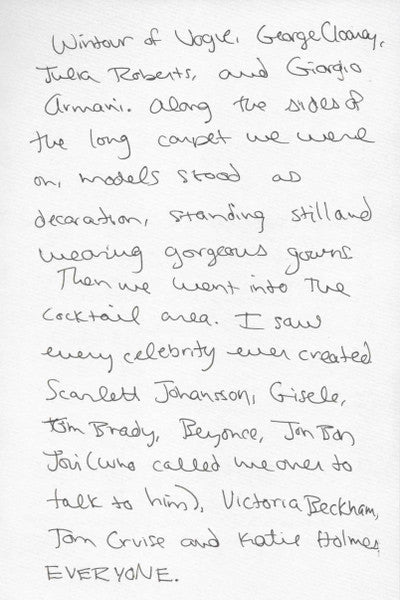 Wintour of Vogue, George Clooney,
Julia Roberts, and Giorgio
Armani. Along the sides of
the long carpet we were
on, models stood as
decoration, standing still and
wearing gorgeous gowns
Then we went into the
cocktail area. I saw
every celebrity ever created
Scarlett Johansson, Gisele,
Tom Brady, Beyonce, Jon Bon
Jovi (who called me over to
talk to him), Victoria Beckham,
Tom Cruise and Katie Holmes
EVERYONE.